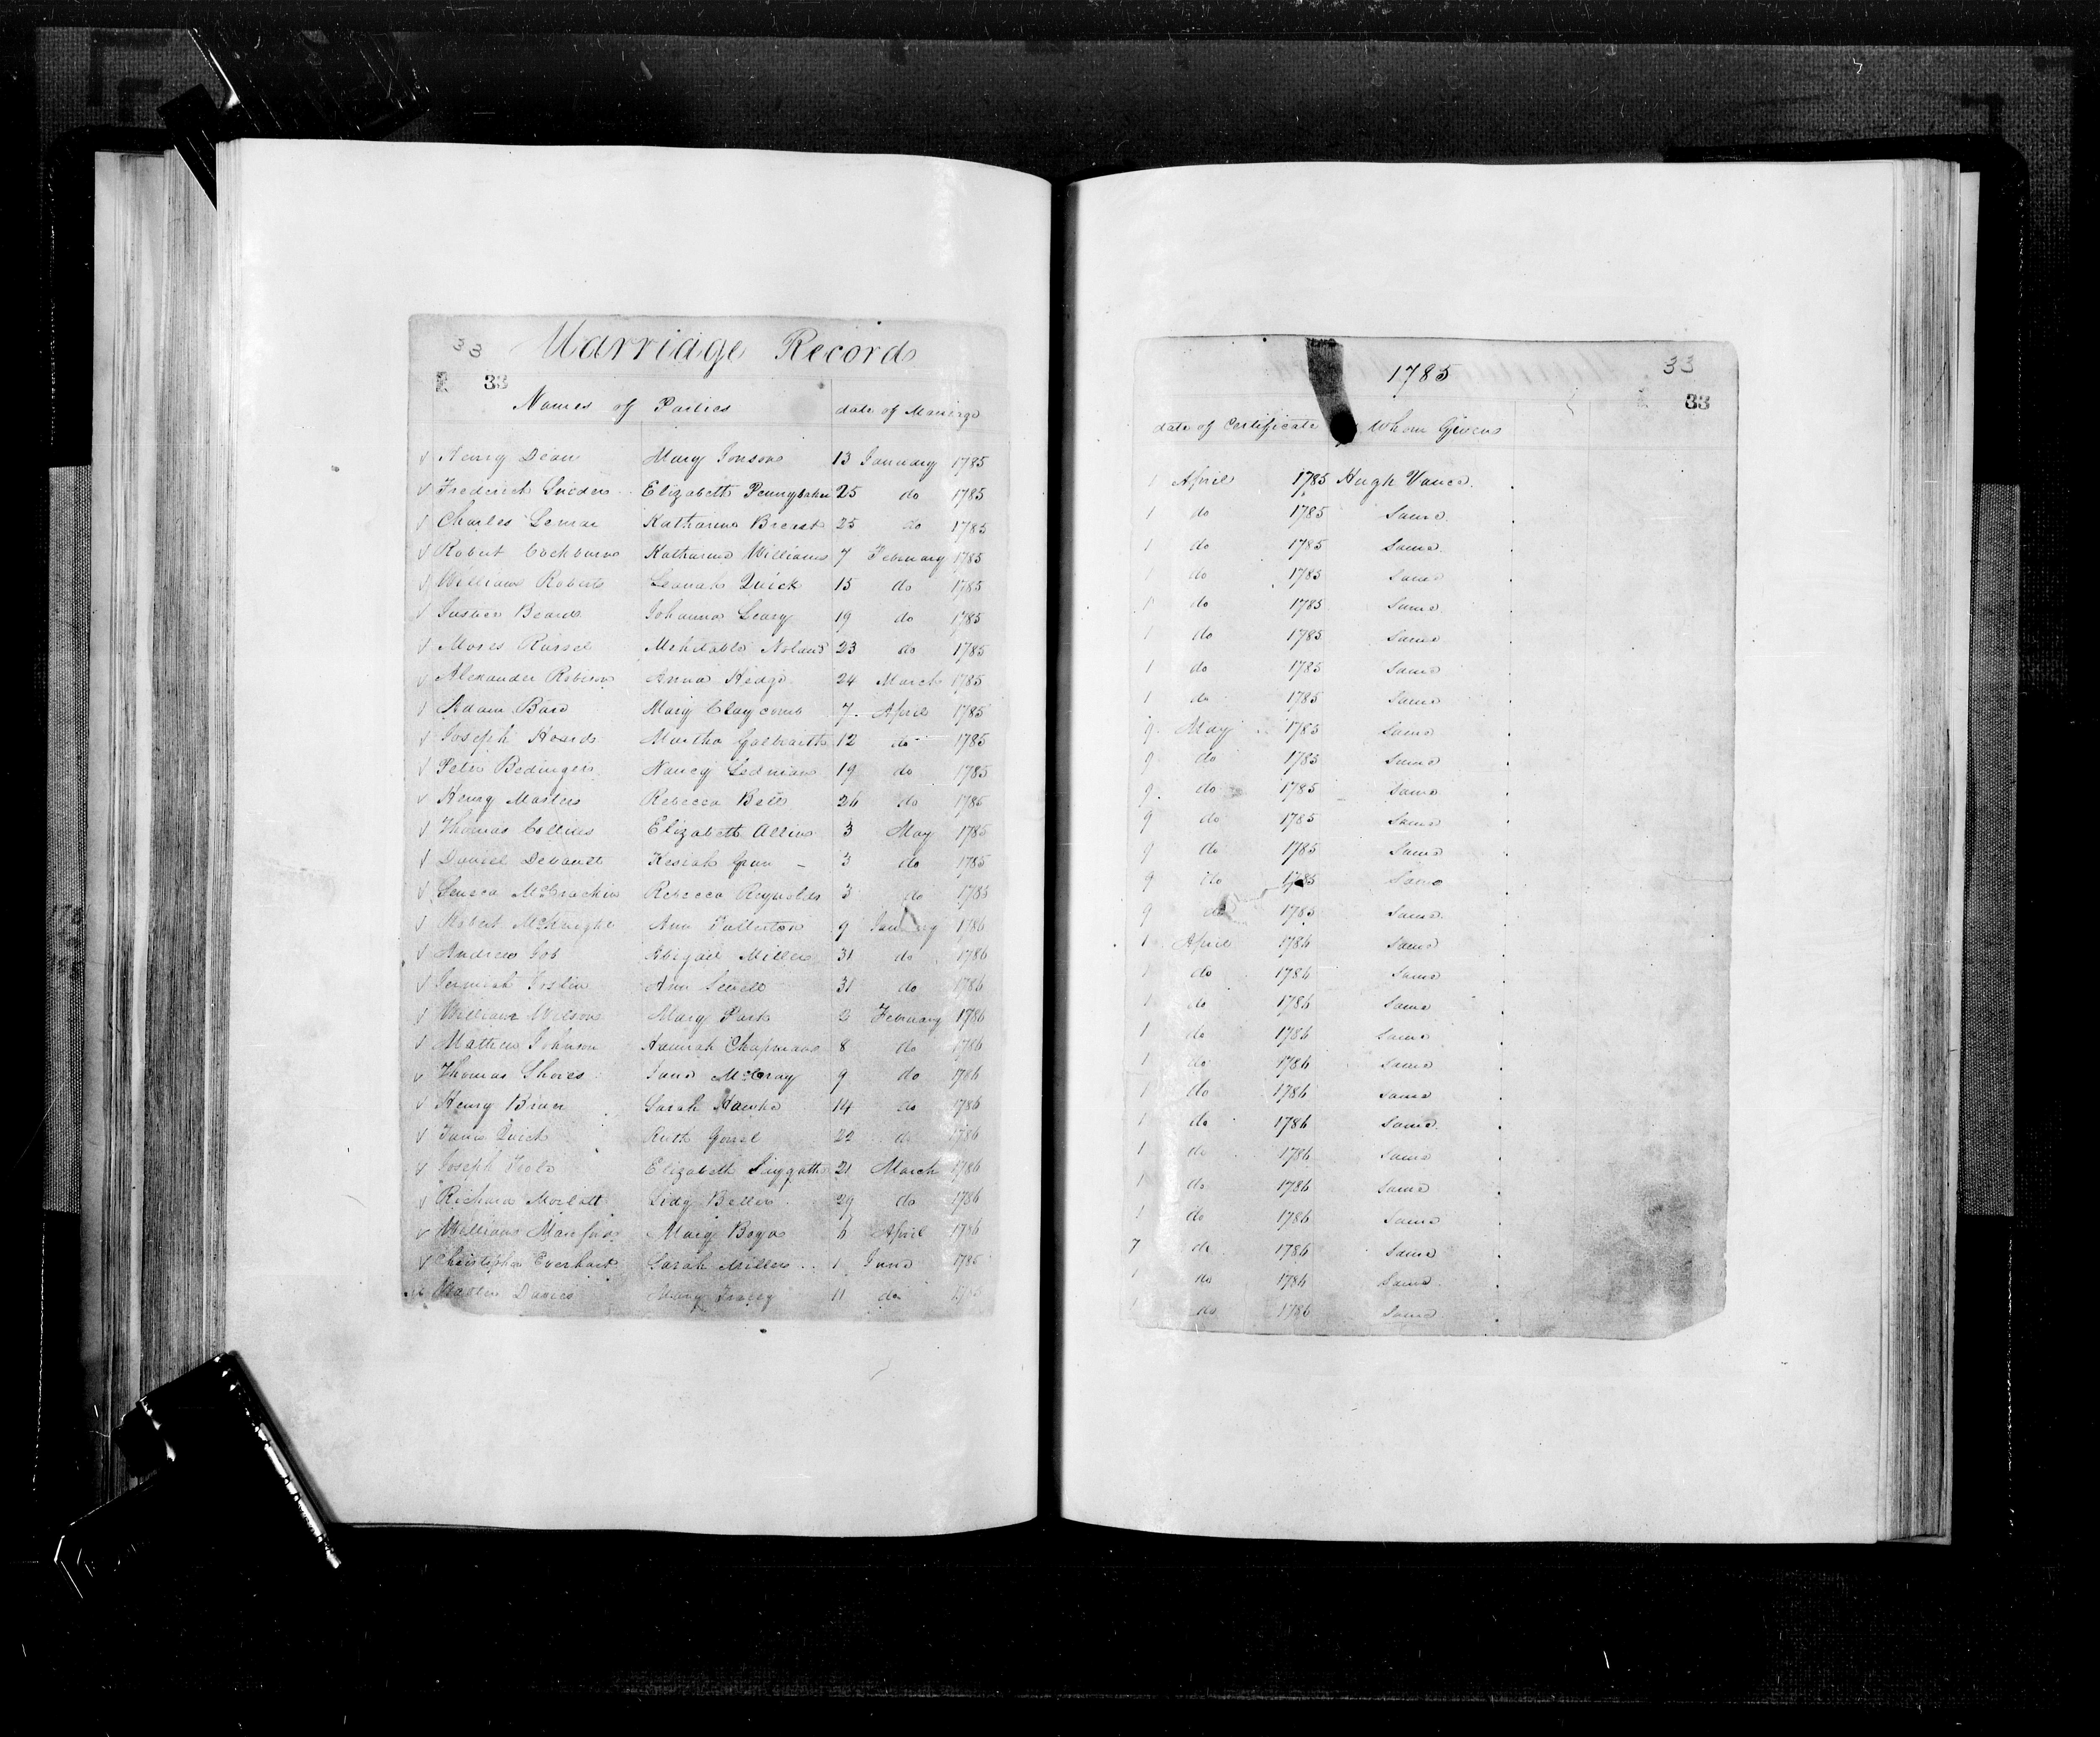 33 Marriage Record
33
Names of Parties date of Marriage
Henry Dean Mary Jonson 13 January 1785
Frederick Elizabeth Pennybaker 25 do 1785
Charles Lemar Katharine 25 do 1785
Robert Cockburn Katharine Williams 7 February 1785
William Roberts Leanah Quick 15 do 1785
Beard Johanna Leary 19 do 1785
Moses Russel Mehitable Noland 23 do 1785
Alexander Robison Anna Hedge 24 March 1785
Adam Bard Mary Claycomb 7 April 1785
Joseph Martha Galbraith 12 do 1785
Peter Bedinger Nancy Ledman 19 do 1785
Henry Masters Rebecca Bells 26 do 1785
Thomas Collins Elizabeth Allin 3 May 1785
Daniel Kesiah 3 do 1785
Seneca McCrackin Rebecca Reynolds 3 do 1785
Robert McKnight Ann Fullerton 9 January 1786
Andrew Job Abigail Miller 31 do 1786
Jeremiah Joslin Ann Sewell 31 do 1786
William Wilson Mary Park 2 February 1786
Mathew Johnson Hannah Chapman 8 do 1786
Thomas Shores Jane McCray 9 do 1786
Henry Sarah Hawke 14 do 1786
James Quick Ruth 22 do 1786
Joseph Elizabeth 21 March 1786
Richard Morlatt Beller 29 do 1786
William Mary Boya 6 April 1786
Christopher Everhart Sarah Miller 1 June 1786
Davies Mary 11 do 1786
1785 33
33
date of Certificate Whom Given
1 April 1785 Hugh Vance
1 do 1785 Same
1 do 1785 Same
1 do 1785 Same
1 do 1785 Same
1 do 1785 Same
1 do 1785 Same
1 do 1785 Same
9 May 1785 Same
9 do 1785 Same
9 do 1785 Same
9 do 1785 Same
9 do 1785 Same
9 do 1785 Same
9 do 1785 Same
1 April 1786 Same
1 do 1786 Same
1 do 1786 Same
1 do 1786 Same
1 do 1786 Same
1 do 1786 Same
1 do 1786 Same
1 do 1786 Same
1 do 1786 Same
1 do 1786 Same
7 do 1786 Same
1 do 1786 Same
1 do 1786 Same